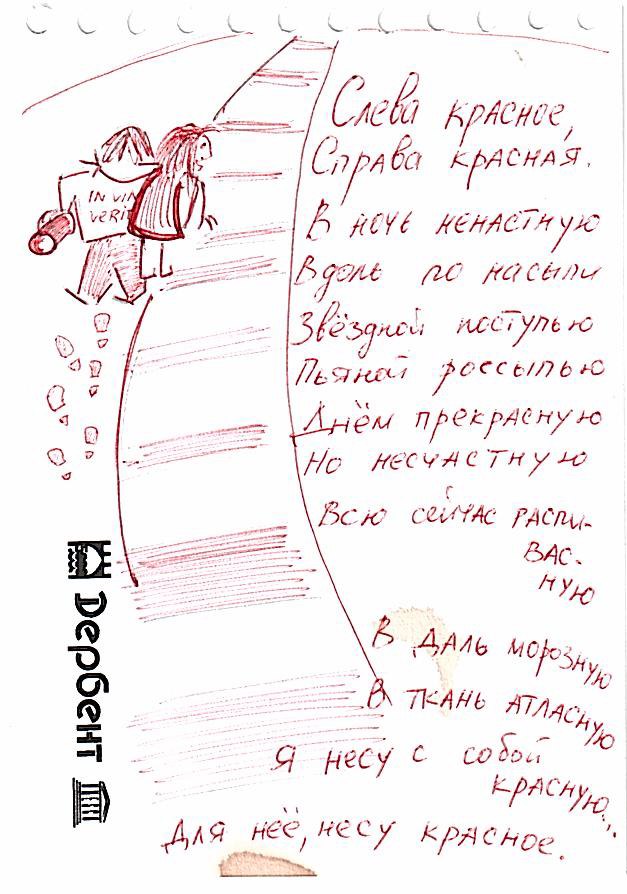 Слева красное,
Справа красная.
В ночь ненастную
Вдоль по насыпи
Звёздной поступью
Пьяной россыпью
Днём прекрасную
Но несчастную
Всю сейчас распи-
вас-
ную
В даль морозную
В ткань атласную
Я несу с собой
красную...
Для неё, несу красное.
IN VIN
VERI
Дербент